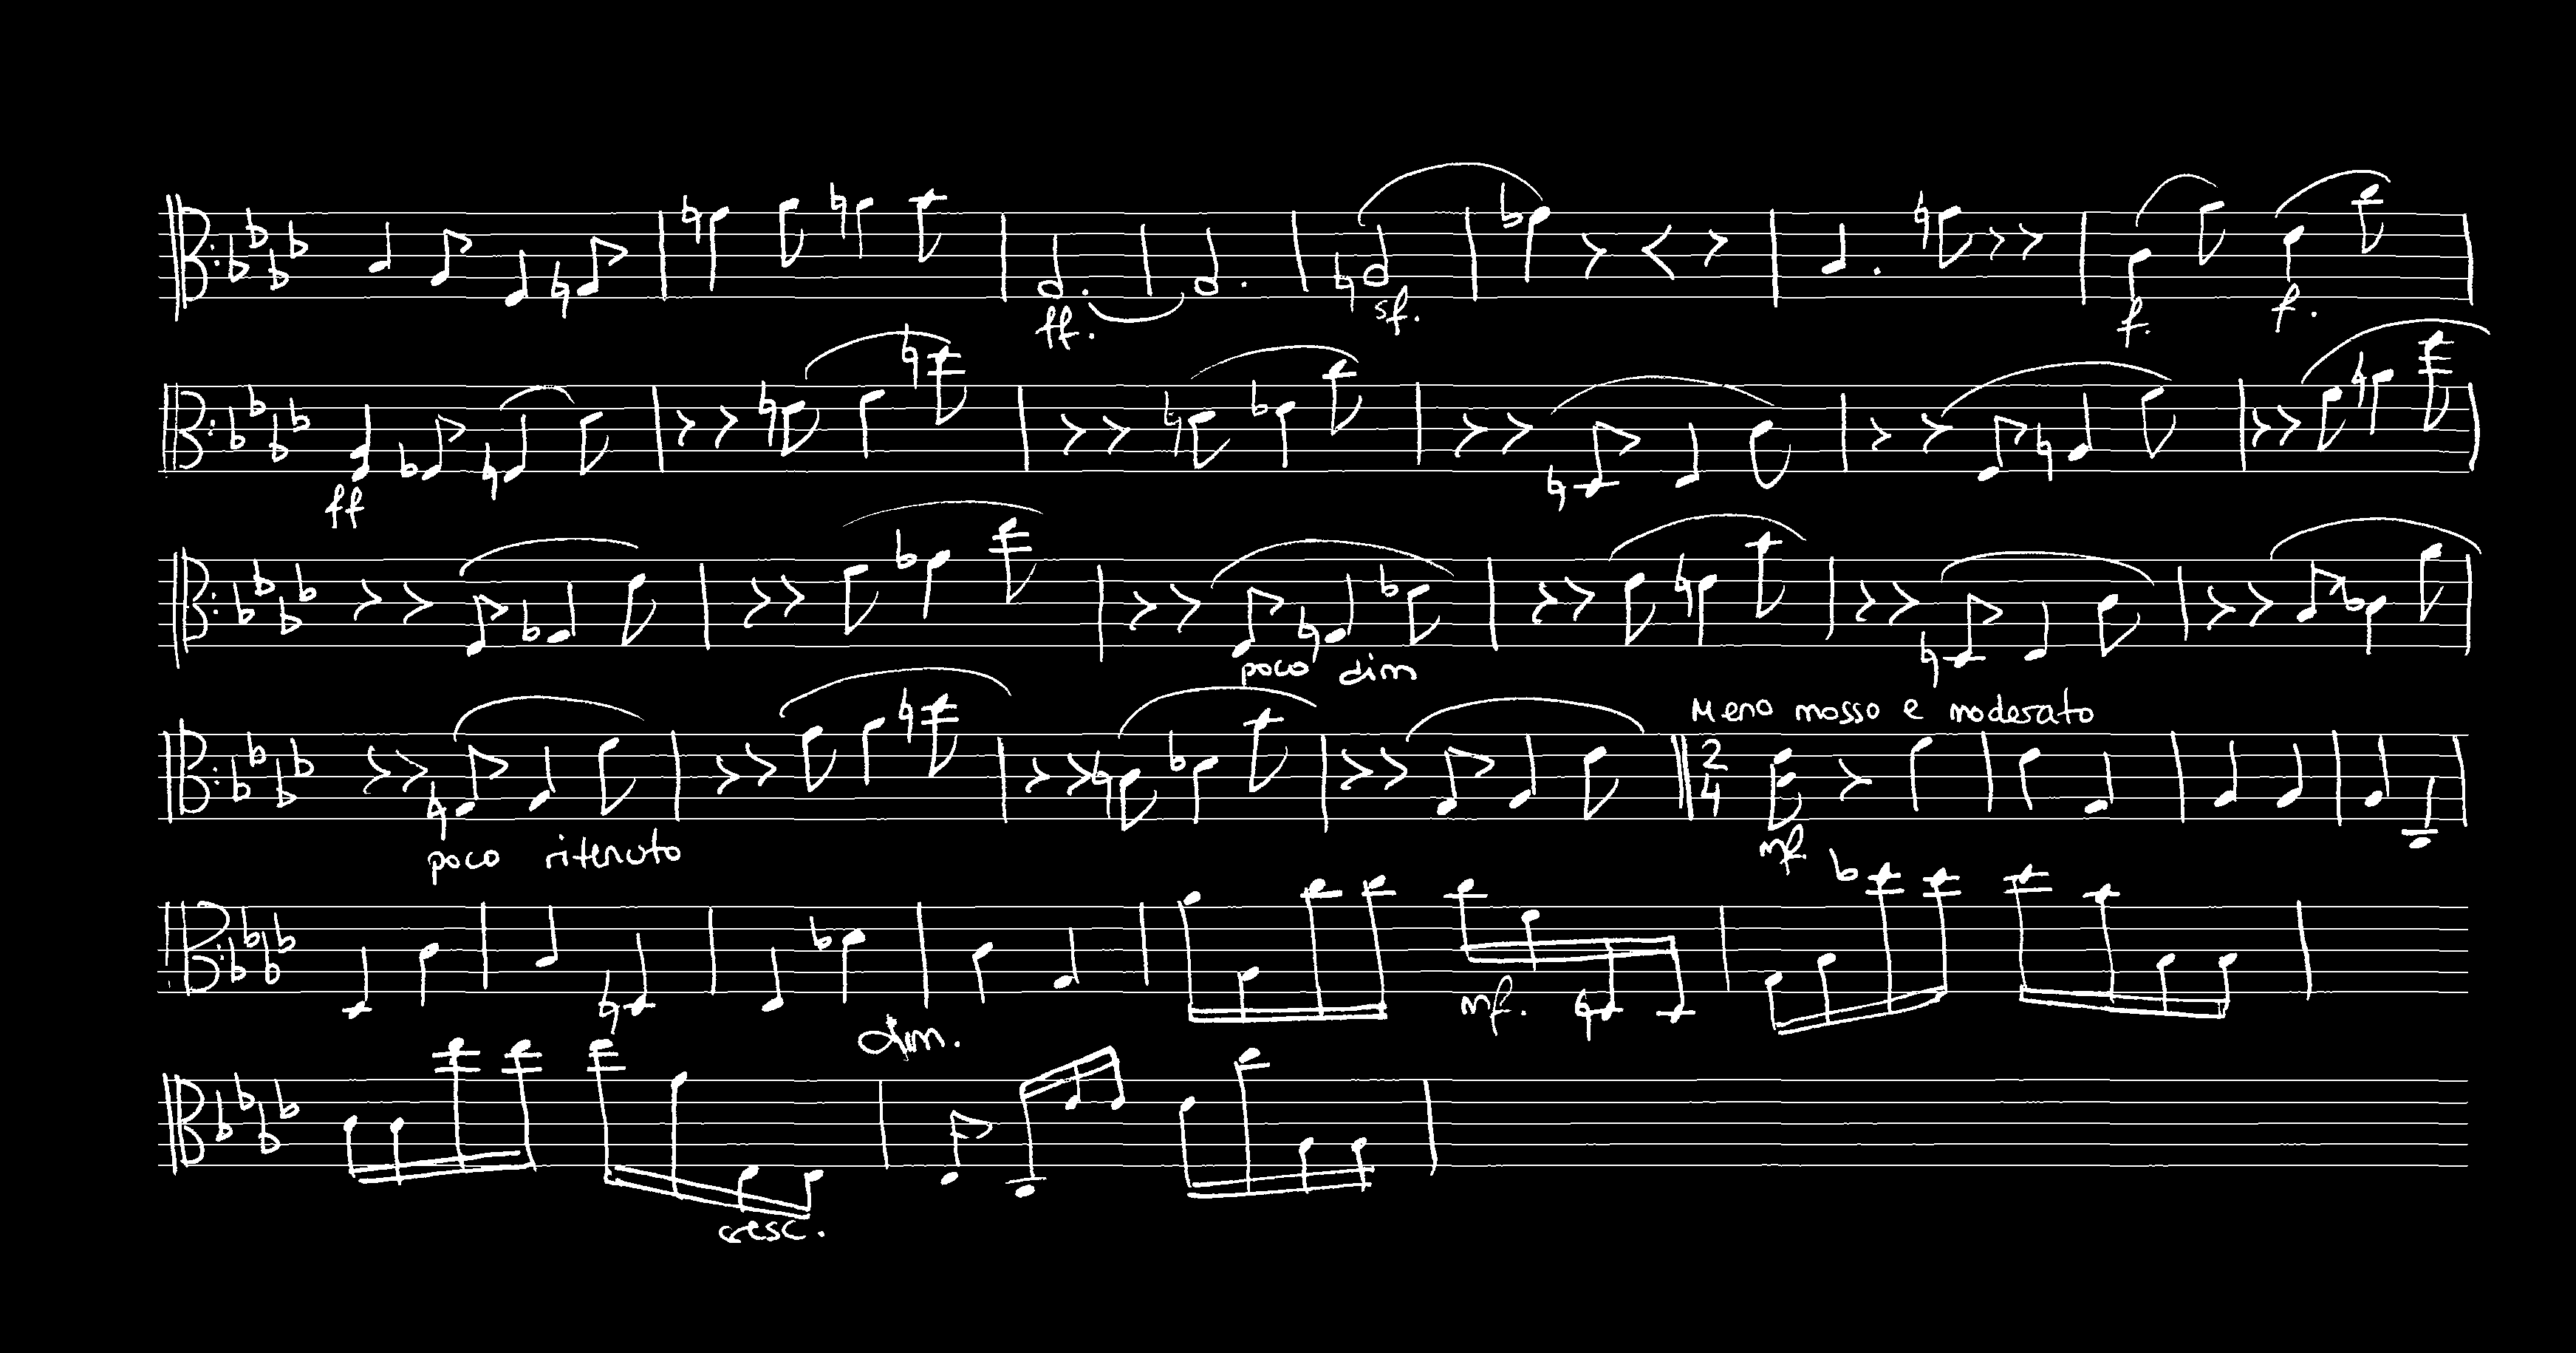 ff. sf. f. f.
ff
poco dim
Meno mosso e moderato
2
4
poco ritenuto mf.
mf.
dim.
cresc.